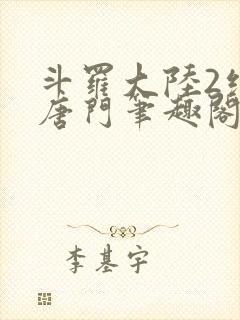 斗羅大陸2
唐門筆趣閣
李基宇